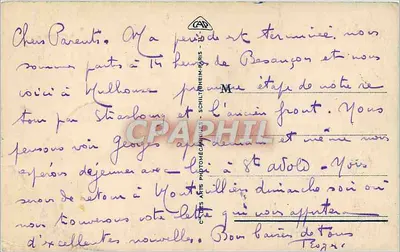 Chers Parents. Ma période est terminée, nous
sommes partis à 14 heures de Besançon et nous
voici à Mulhouse première étape de notre re
tour par Strasbourg et l'ancien front. Nous
pensons voir Georges et même nous
espérons déjeuner avec lui à St Avold. Nous
serons de retour à dimanche soir où
nous trouverons votre lettre qui nous apportera
d'excellentes nouvelles. Bons baisers de tous
M
CAP
CPARAMA
SCHILTIGHEIM-PARIS